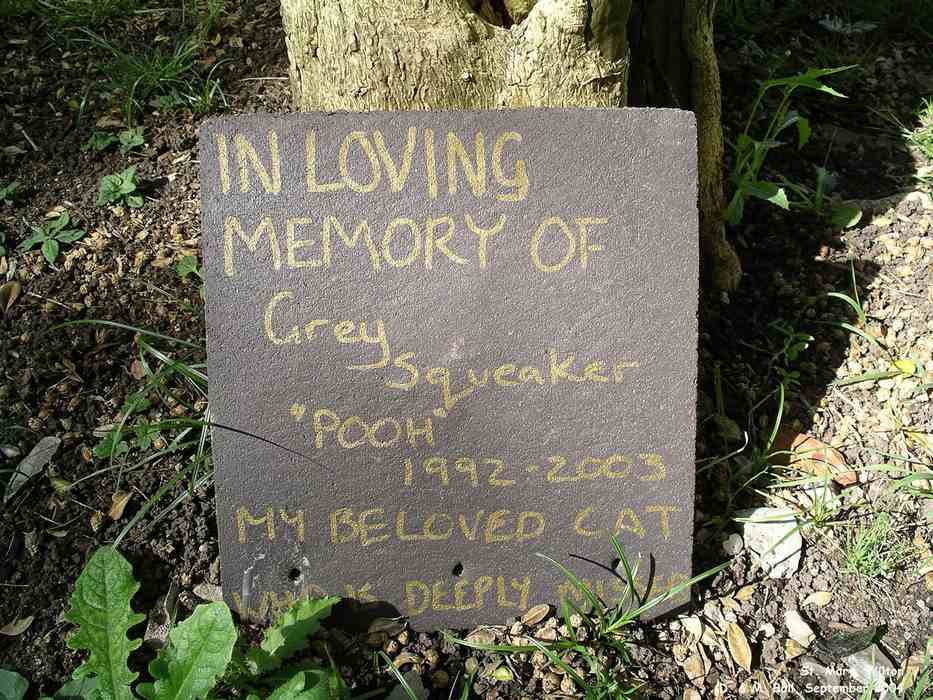 IN LOVING
MEMORY OF
Grey
Squeaker
"POOH"
1992-2003
MY BELOVED CAT
WHO IS DEEPLY MISSED
St. Mary, Witton
(D. & M. Ball, September 2004)